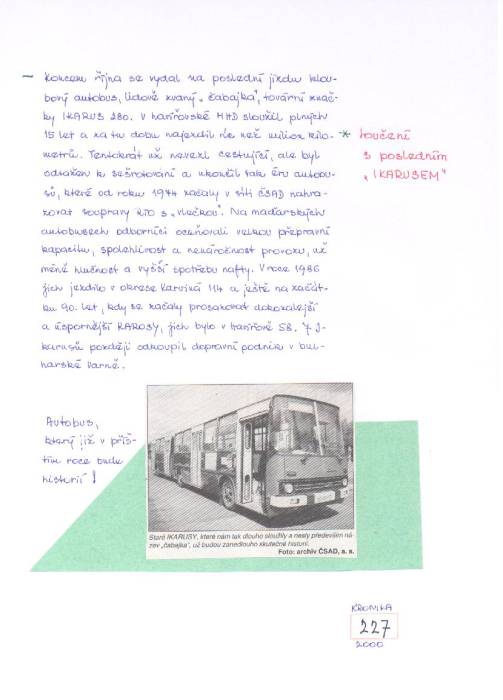 ~ Koncem října se vydal na poslední jízdu klou-
bový autobus, lidově zvaný „čabajka", tovární znač-
ky IKARUS 280. V havířovské MHD sloužil plných
15 let a za tu dobu najezdil víc než milion kilo-
metrů. Tentokrát už nevezl cestující, ale byl
odtažen k sešrotování a ukončil tak éru autobu-
sů, které od roku 1974 začaly v síti ČSAD nahra-
zovat soupravy RTO s „vlečkou". Na maďarských
autobusech odborníci oceňovali velkou přepravní
kapacitu, spolehlivost a nenáročnost provozu, už
méně hlučnost a vyšší spotřebu nafty. V roce 1986
jich jezdilo v okrese Karviná 114 a ještě na začát-
ku 90. let, kdy se začaly prosazovat dokonalejší
a úspornější KAROSY, jich bylo v Havířově 58. 7 I-
karusů později odkoupil dopravní podnik v bul-
harské Varně.
* Loučení
s posledním
„IKARUSEM"
Autobus,
který již v příš-
tím roce bude
historií!
Staré IKARUSY, které nám tak dlouho sloužily a nesly především ná-
zev „čabajka", už budou zanedlouho skutečně historií.
Foto: archiv ČSAD, a. s.
KRONIKA
227
2000